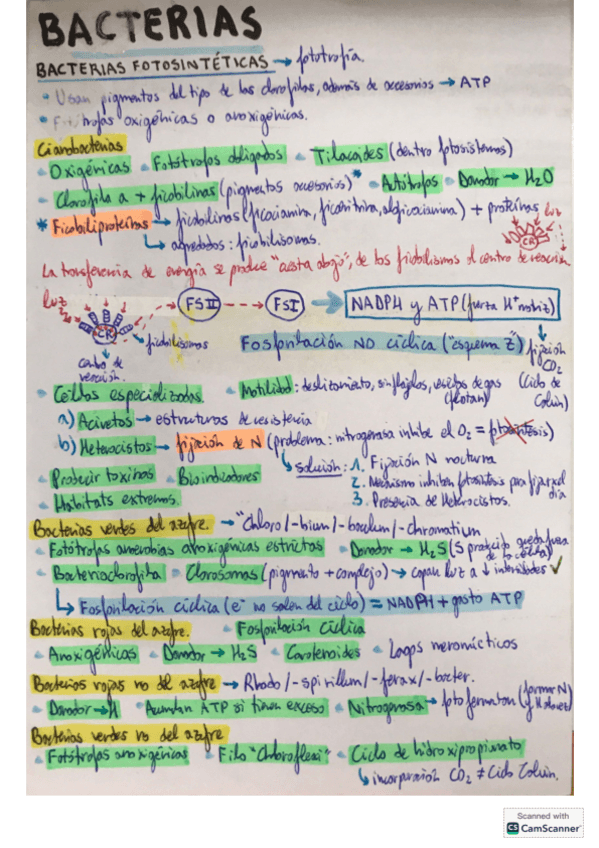 BACTERIAS
BACTERIAS FOTOSINTÉTICAS → fototrofía.
• Usan pigmentos del tipo de las clorofilas, además de accesorios → ATP
• Fotótrofas oxigénicas o anoxigénicas.
Cianobacterias
Oxigénicas Fotótrofos obligados Tilacoides (dentro fotosistemas)
Clorofila a + ficobilinas (pigmentos accesorios)* Autótrofos Donador → H2O
* Ficobiliproteínas → ficobilinas (ficocianina, ficoeritrina, aloficocianina) + proteínas luz
↳ agregados: ficobilisomas. CR
La transferencia de energía se produce "cuesta abajo", de los ficobilisomas al centro de reacción
luz FSII FSI → NADPH y ATP (fuerza H+ motriz)
CR → ficobilisomas Fosforilación NO cíclica ("esquema Z") fijación
centro de reacción. CO2
Células especializadas. Motilidad: deslizamiento, sin flagelos, vesículas de gas (flotan) (Ciclo de Calvin)
a) Acinetos → estructuras de resistencia
b) Heterocistos → fijación de N (problema: nitrogenasa inhibe el O2 = fotosíntesis)
↳ solución: 1. Fijación N nocturna
Producir toxinas Bioindicadores 2. Mecanismo inhiben fotosíntesis para fijar x el día
Habitats extremos. 3. Presencia de Heterocistos.
Bacterias verdes del azufre. → "Chloro/-bium/-baculum/-chromatium
Fotótrofas anaerobias anoxigénicas estrictas Donador → H2S (S producido queda fuera de la célula)
Bacterioclorofila Clorosomas (pigmento + complejo) → captan luz a ↓ intensidades ✓
↳ Fosforilación cíclica (e- no salen del ciclo) = NADPH + gasto ATP
Bacterias rojas del azufre. Fosforilación cíclica
Anoxigénicas Donador → H2S Carotenoides Lagos meromícticos
Bacterias rojas no del azufre → Rhodo/-spirillum/-ferax/-bacter.
Donador → H Aumentan ATP si tienen exceso Nitrogenasa → fotofermentan
Bacterias verdes no del azufre
Fotótrofos anoxigénicas Filo "Chloroflexi" Ciclo de hidroxipropionato
↳ incorporación CO2 ≠ Ciclo Calvin.
Scanned with
CS CamScanner